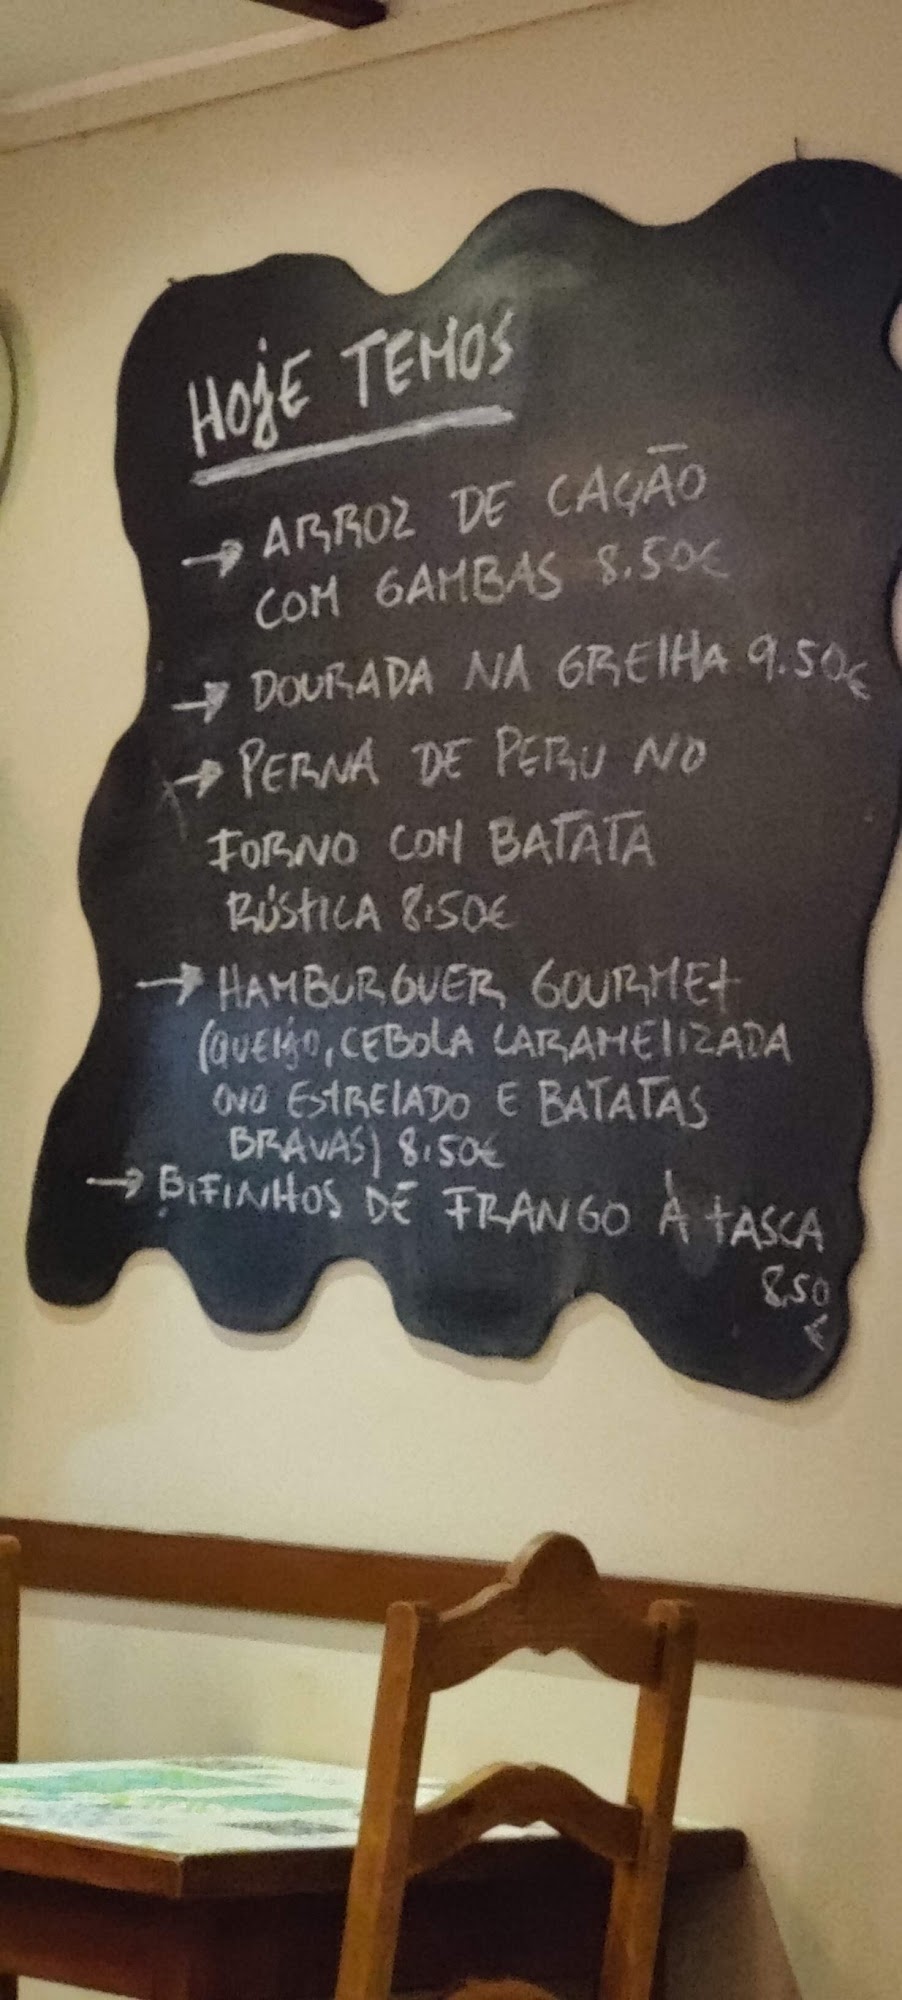 HOJE TEMOS
→ ARROZ DE CAÇÃO
COM GAMBAS 8.50€
→ DOURADA NA GRELHA 9.50€
→ PERNA DE PERU NO
FORNO COM BATATA
RÚSTICA 8.50€
→ HAMBURGUER GOURMET
(QUEIJO, CEBOLA CARAMELIZADA
OVO ESTRELADO E BATATAS
BRAVAS) 8.50€
→ BIFINHOS DE FRANGO À TASCA
8.50
€